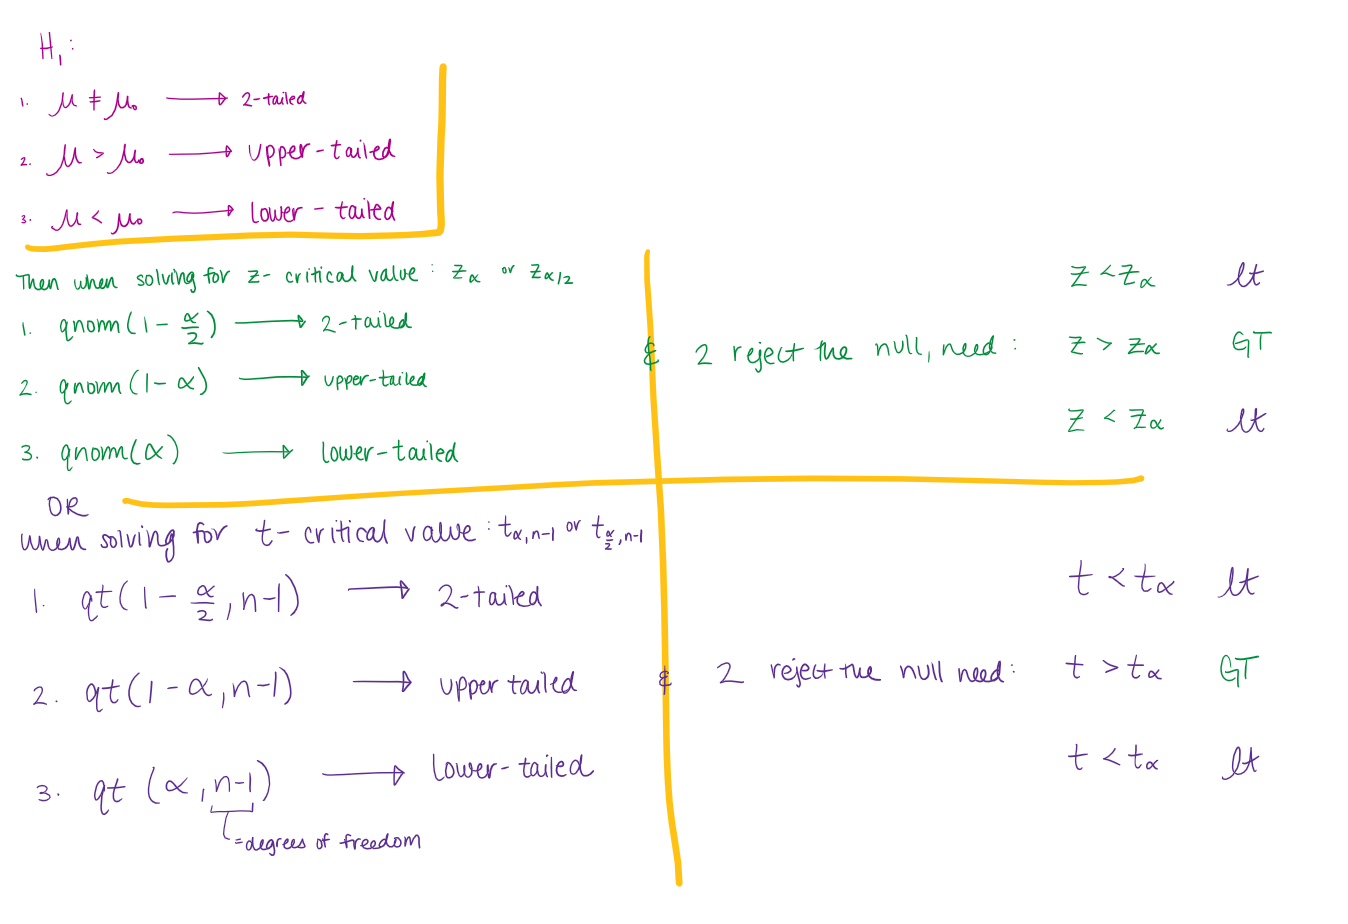 H₁:
1. μ ≠ μ₀ → 2-tailed
2. μ > μ₀ → upper-tailed
3. μ < μ₀ → lower-tailed
Then when solving for z-critical value: zα or zα/2
1. qnorm(1 - α/2) → 2-tailed
2. qnorm(1 - α) → upper-tailed
3. qnorm(α) → lower-tailed
& 2 reject the null, need:
z < zα lt
z > zα GT
z < zα lt
OR
when solving for t-critical value: tα,n-1 or tα/2,n-1
1. qt(1 - α/2, n-1) → 2-tailed
2. qt(1 - α, n-1) → upper tailed
3. qt (α, n-1) → lower-tailed
= degrees of freedom
& 2 reject the null need:
t < tα lt
t > tα GT
t < tα lt